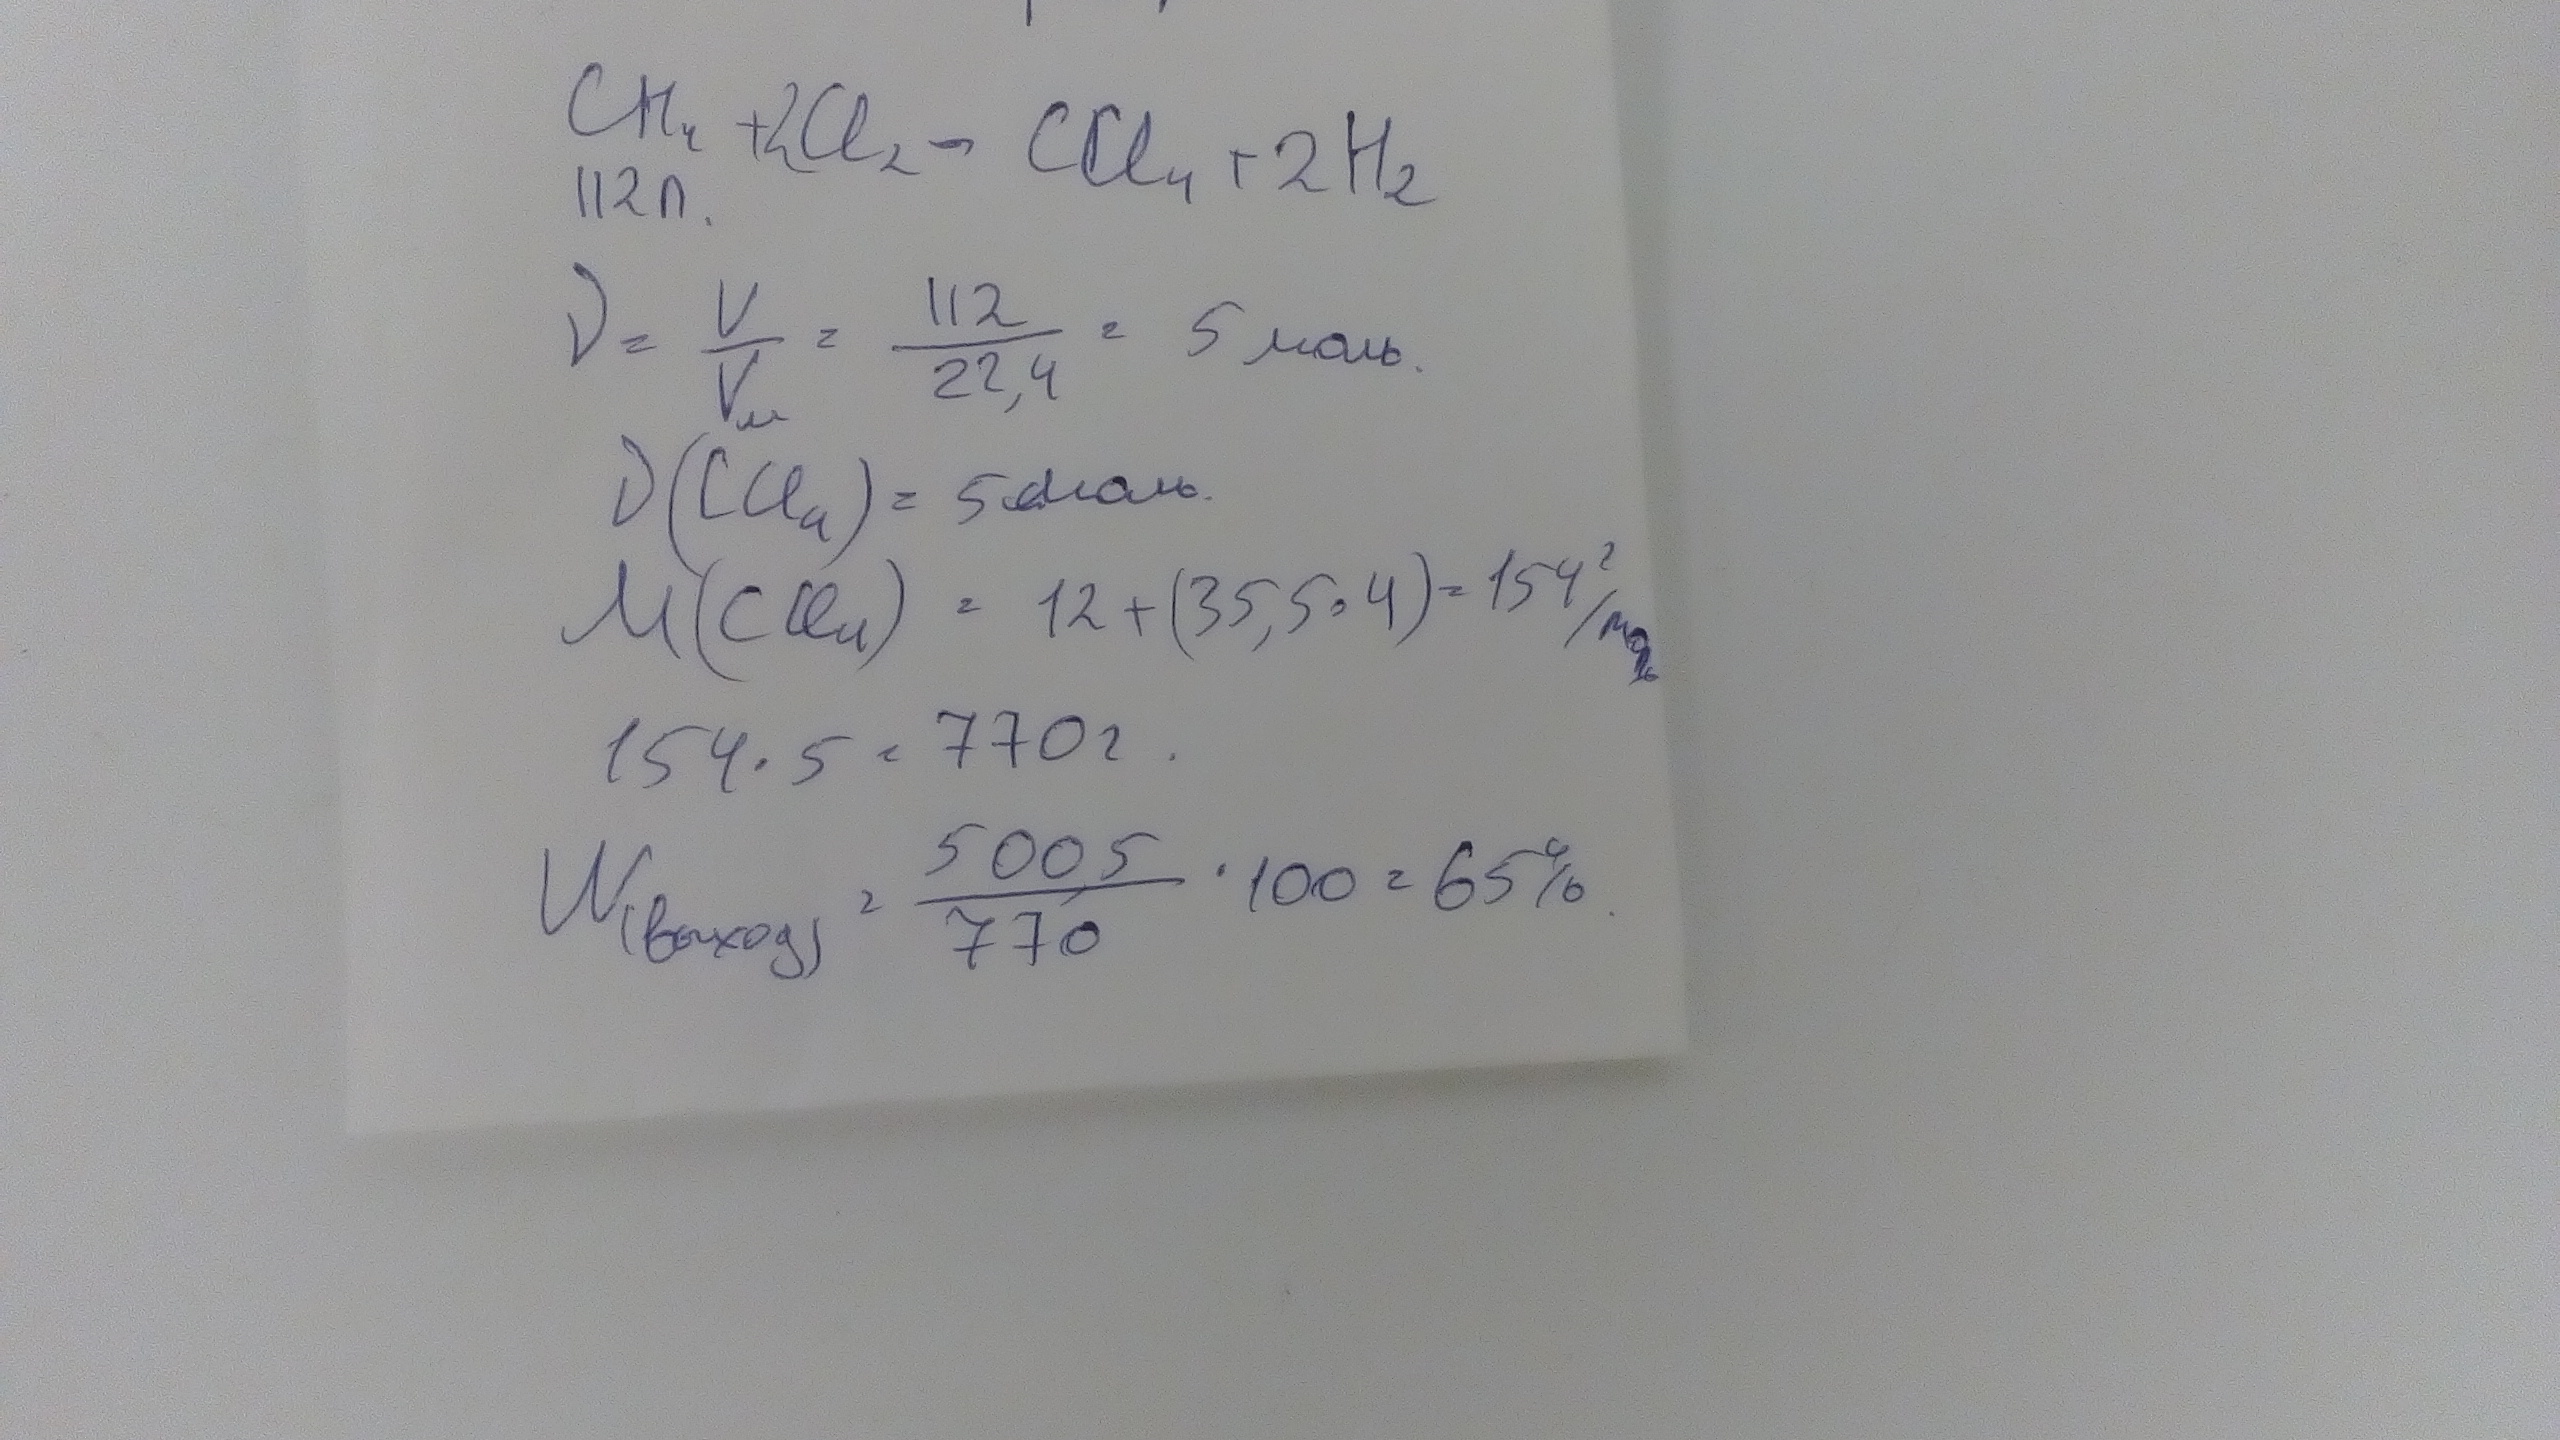 CH₄ + 2Cl₂ → CCl₄ + 2H₂
112л.
ν = V/Vм = 112/22,4 = 5 моль.
ν(CCl₄) = 5 моль.
M(CCl₄) = 12 + (35,5 · 4) = 154 г/моль
154 · 5 = 770 г.
W(выход) = 500,5/770 · 100 = 65%.